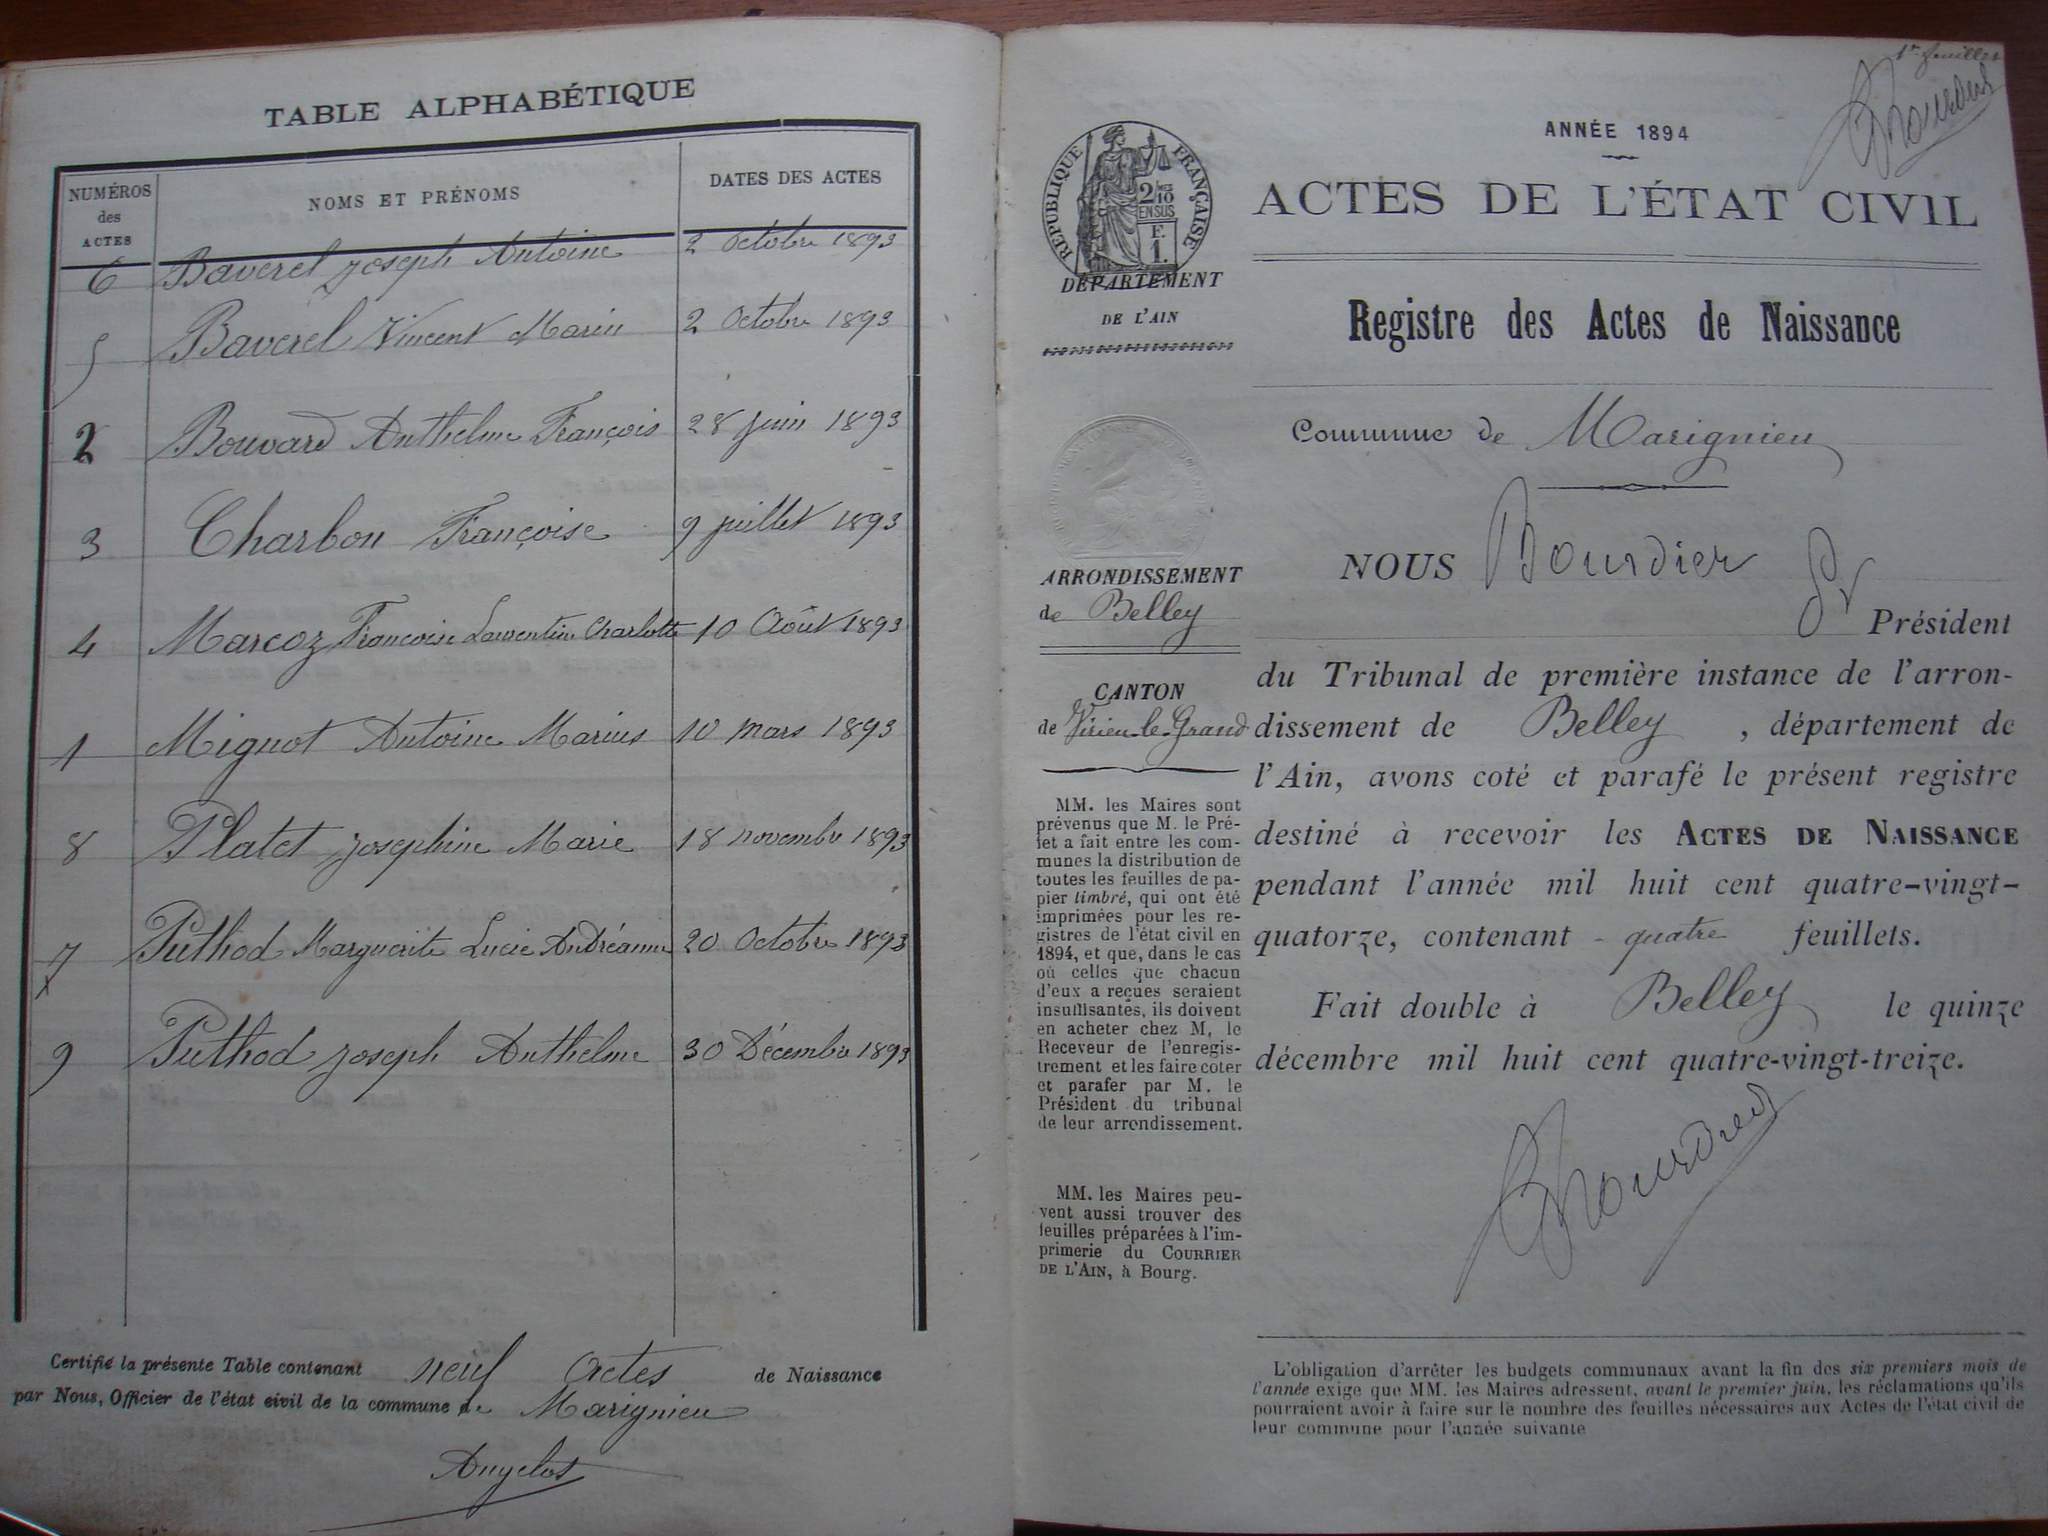 TABLE ALPHABÉTIQUE
NUMÉROS des ACTES NOMS ET PRÉNOMS DATES DES ACTES
6 Baverel Joseph Antoine 2 Octobre 1893
5 Baverel Vincent Marin 2 Octobre 1893
2 Bouvard Anthelme François 28 Juin 1893
3 Charbon Françoise 9 Juillet 1893
4 Marcoz Françoise Laurentine Charlotte 10 Août 1893
1 Mignot Antoine Marius 10 Mars 1893
8 Platet Joséphine Marie 18 novembre 1893
7 Puthod Marguerite Lucie Andréanne 20 Octobre 1893
9 Puthod Joseph Anthelme 30 Décembre 1893
Certifié la présente Table contenant neuf Actes de Naissance
par Nous, Officier de l'état civil de la commune de Marignieu
Angelot
1er feuillet
ANNÉE 1894
RÉPUBLIQUE FRANÇAISE
2/10
EN SUS
F.
1.
ACTES DE L'ÉTAT CIVIL
DÉPARTEMENT
DE L'AIN
Registre des Actes de Naissance
Commune de Marignieu
ARRONDISSEMENT
de Belley
CANTON
de Virieu-le-Grand
MM. les Maires sont
prévenus que M. le Pré-
fet a fait entre les com-
munes la distribution de
toutes les feuilles de pa-
pier timbré, qui ont été
imprimées pour les re-
gistres de l'état civil en
1894, et que, dans le cas
où celles que chacun
d'eux a reçues seraient
insuffisantes, ils doivent
en acheter chez M, le
Receveur de l'enregis-
trement et les faire coter
et parafer par M. le
Président du tribunal
de leur arrondissement.
MM. les Maires peu-
vent aussi trouver des
feuilles préparées à l'im-
primerie du COURRIER
DE L'AIN, à Bourg.
NOUS Bourdier
Président
du Tribunal de première instance de l'arron-
dissement de Belley, département de
l'Ain, avons coté et parafé le présent registre
destiné à recevoir les ACTES DE NAISSANCE
pendant l'année mil huit cent quatre-vingt-
quatorze, contenant quatre feuillets.
Fait double à Belley le quinze
décembre mil huit cent quatre-vingt-treize.
L'obligation d'arrêter les budgets communaux avant la fin des six premiers mois de
l'année exige que MM. les Maires adressent, avant le premier juin, les réclamations qu'ils
pourraient avoir à faire sur le nombre des feuilles nécessaires aux Actes de l'état civil de
leur commune pour l'année suivante